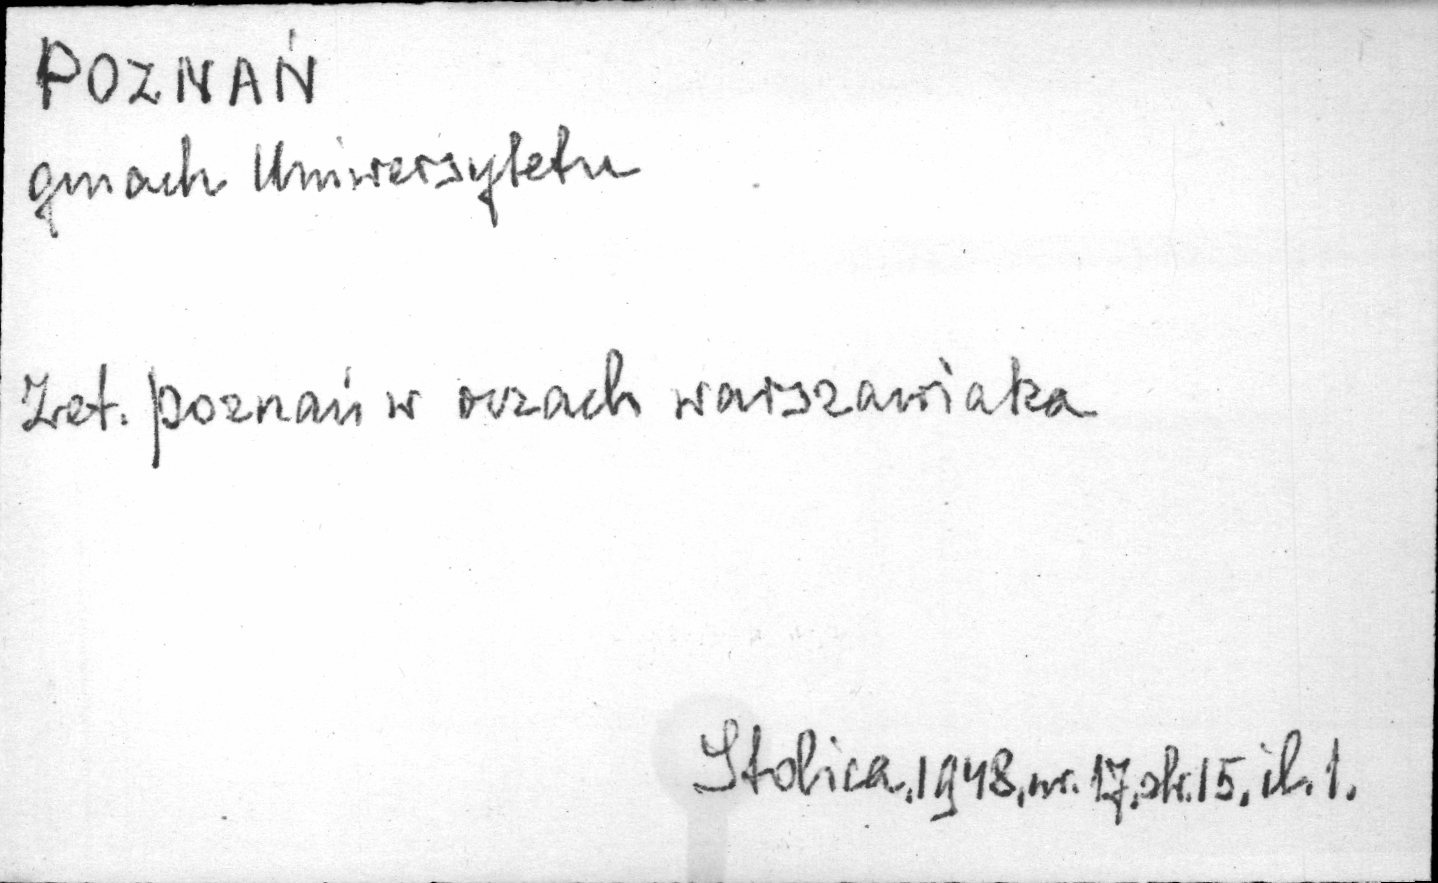 POZNAŃ
gmach Uniwersytetu
Zet. poznań w oczach warszawiaka
Stolica, 1948, nr. 17, str. 15, il. 1.